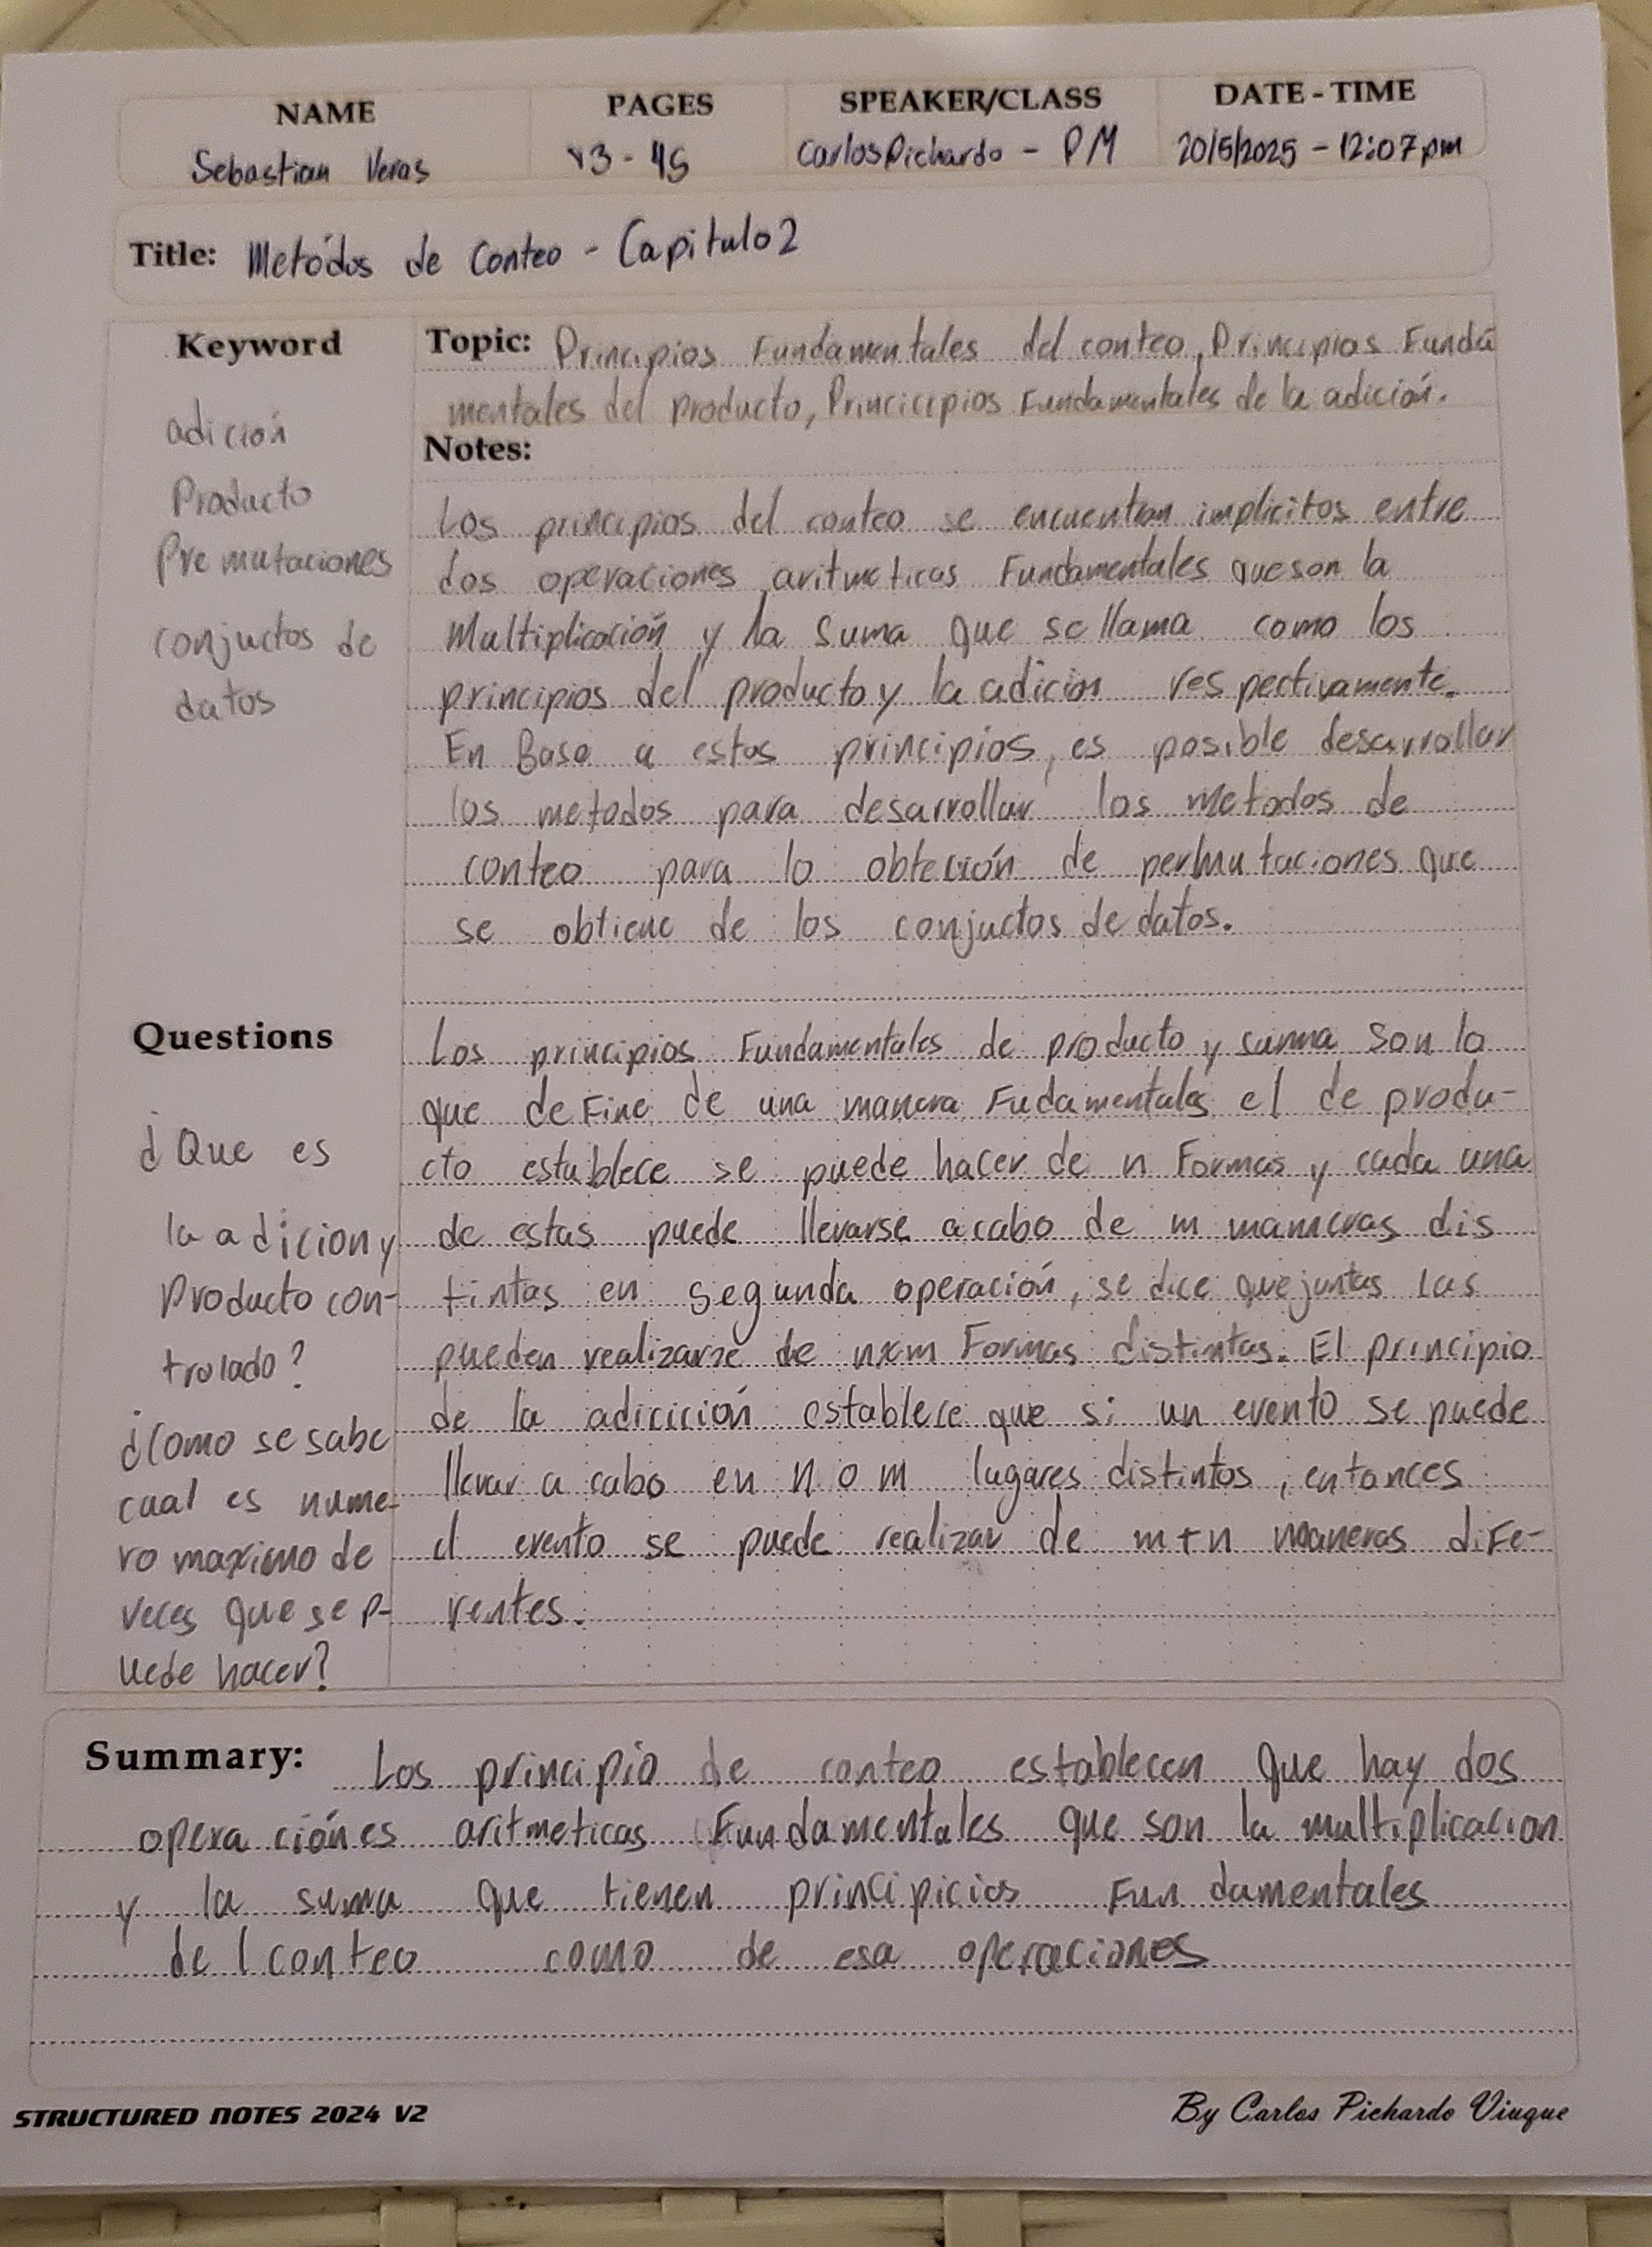 NAME PAGES SPEAKER/CLASS DATE - TIME
Sebastian Veras 43 - 45 Carlos Pichardo - PM 20/5/2025 - 12:07 pm
Title: Metódos de Conteo - Capitulo 2
Keyword
adición
Producto
Premutaciones
conjuctos de
datos
Topic: Principios Fundamentales del conteo, Principios Funda
mentales del producto, Princicipios Fundamentales de la adición.
Notes:
Los principios del conteo se encuentran implicitos entre
dos operaciones aritmeticas Fundamentales que son la
Multiplicación y la Suma que se llama como los
principios del producto y la adicion respectivamente.
En Base a estos principios, es posible desarrollar
los metodos para desarrollar los metodos de
conteo para lo obteción de permutaciones que
se obtiene de los conjuctos de datos.
Questions
¿Que es
la adicion y
Producto con-
trolado?
¿Como se sabe
cual es nume-
ro maximo de
veces que se p-
uede hacer?
Los principios Fundamentales de producto y suma son lo
que deFine de una manera Fudamentales el de produ-
cto establece se puede hacer de n Formas y cada una
de estas puede llevarse acabo de m maneras dis
tintas en segunda operación, se dice que juntas las
pueden realizarse de nxm Formas distintas. El principio
de la adicición establece que si un evento se puede
llevar a cabo en n o m lugares distintos, entonces
el evento se puede realizar de m+n maneras diFe-
rentes.
Summary: Los principio de conteo establecen que hay dos
operaciónes aritmeticas Fundamentales que son la multiplicacion
y la suma que tienen principicios Fundamentales
del conteo como de esa operaciones
STRUCTURED NOTES 2024 V2
By Carlos Pichardo Viuque